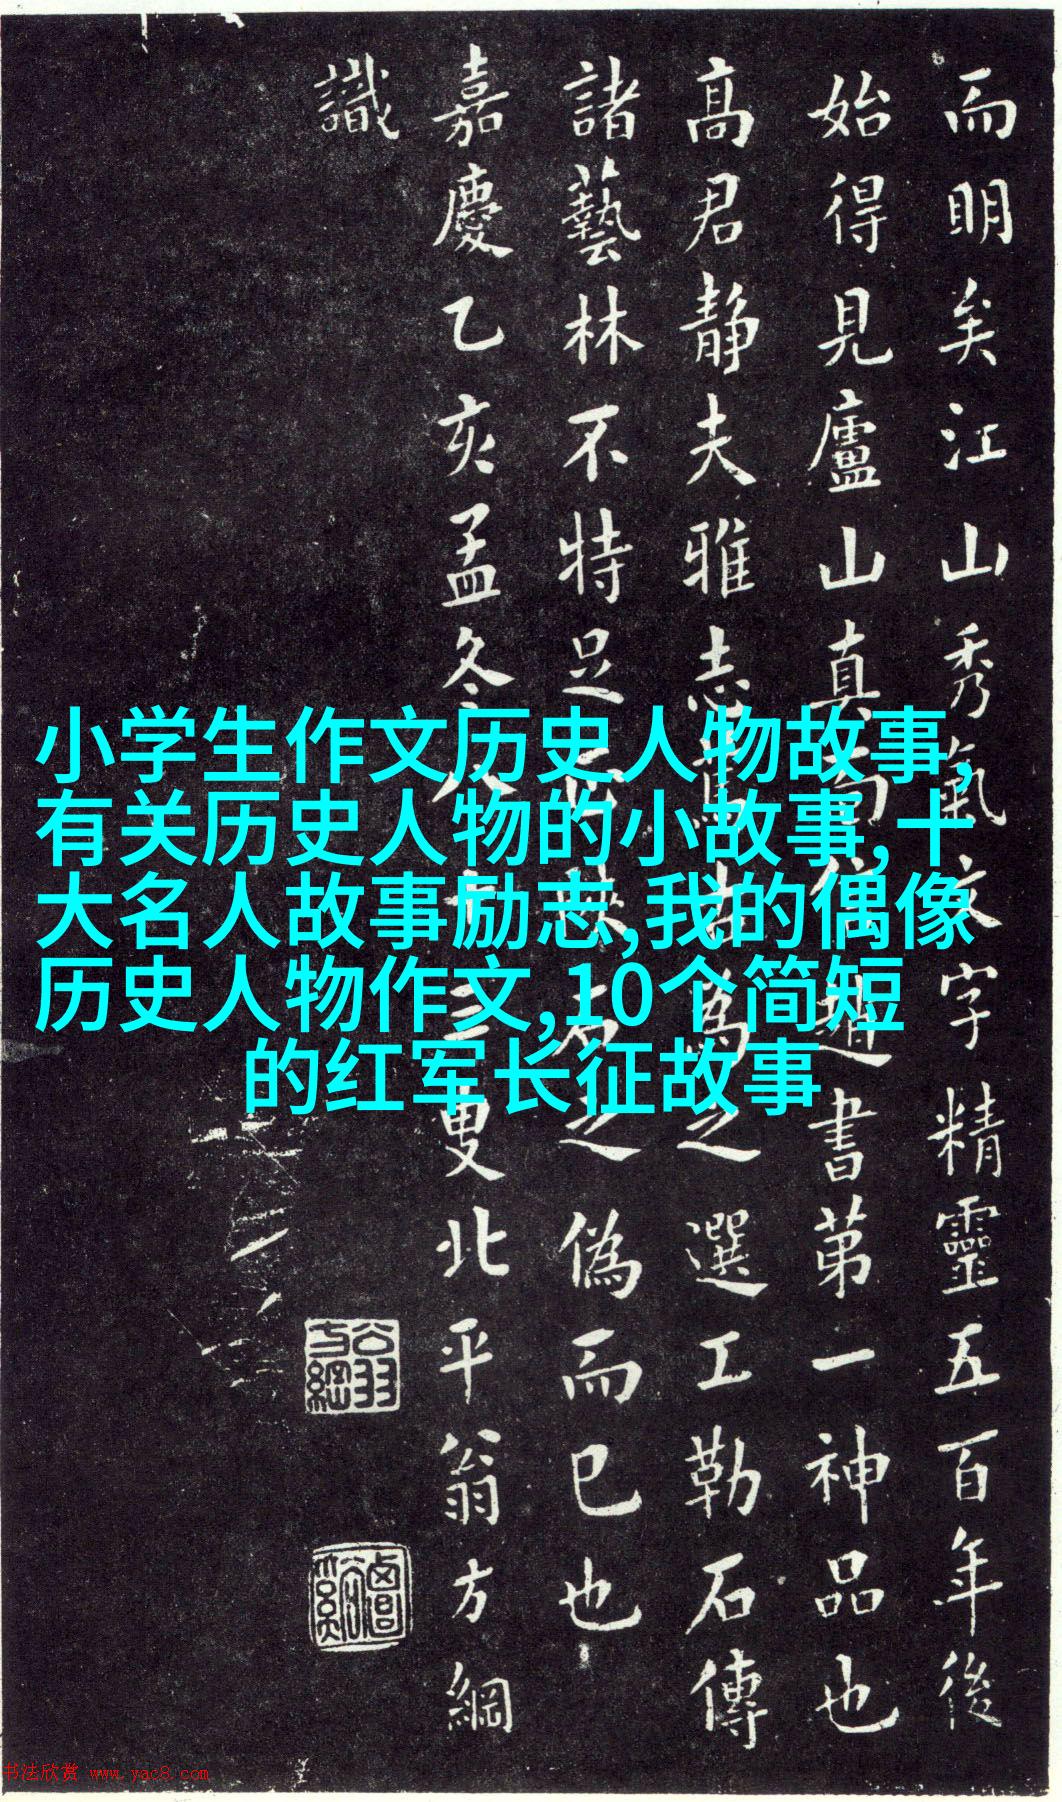 而明矣江山秀氣文字精靈五百年後
始得見廬山真趙書第一神品也
高君静夫雅志篤古為之選工勒石傳
諸藝林不特足石之偽而已也
嘉慶乙亥孟冬八十三叟北平翁方綱
識
翁方綱
小学生作文历史人物故事,
有关历史人物的小故事,十
大名人故事励志,我的偶像
历史人物作文,10个简短
的红军长征故事
书法欣赏 www.yac8.com